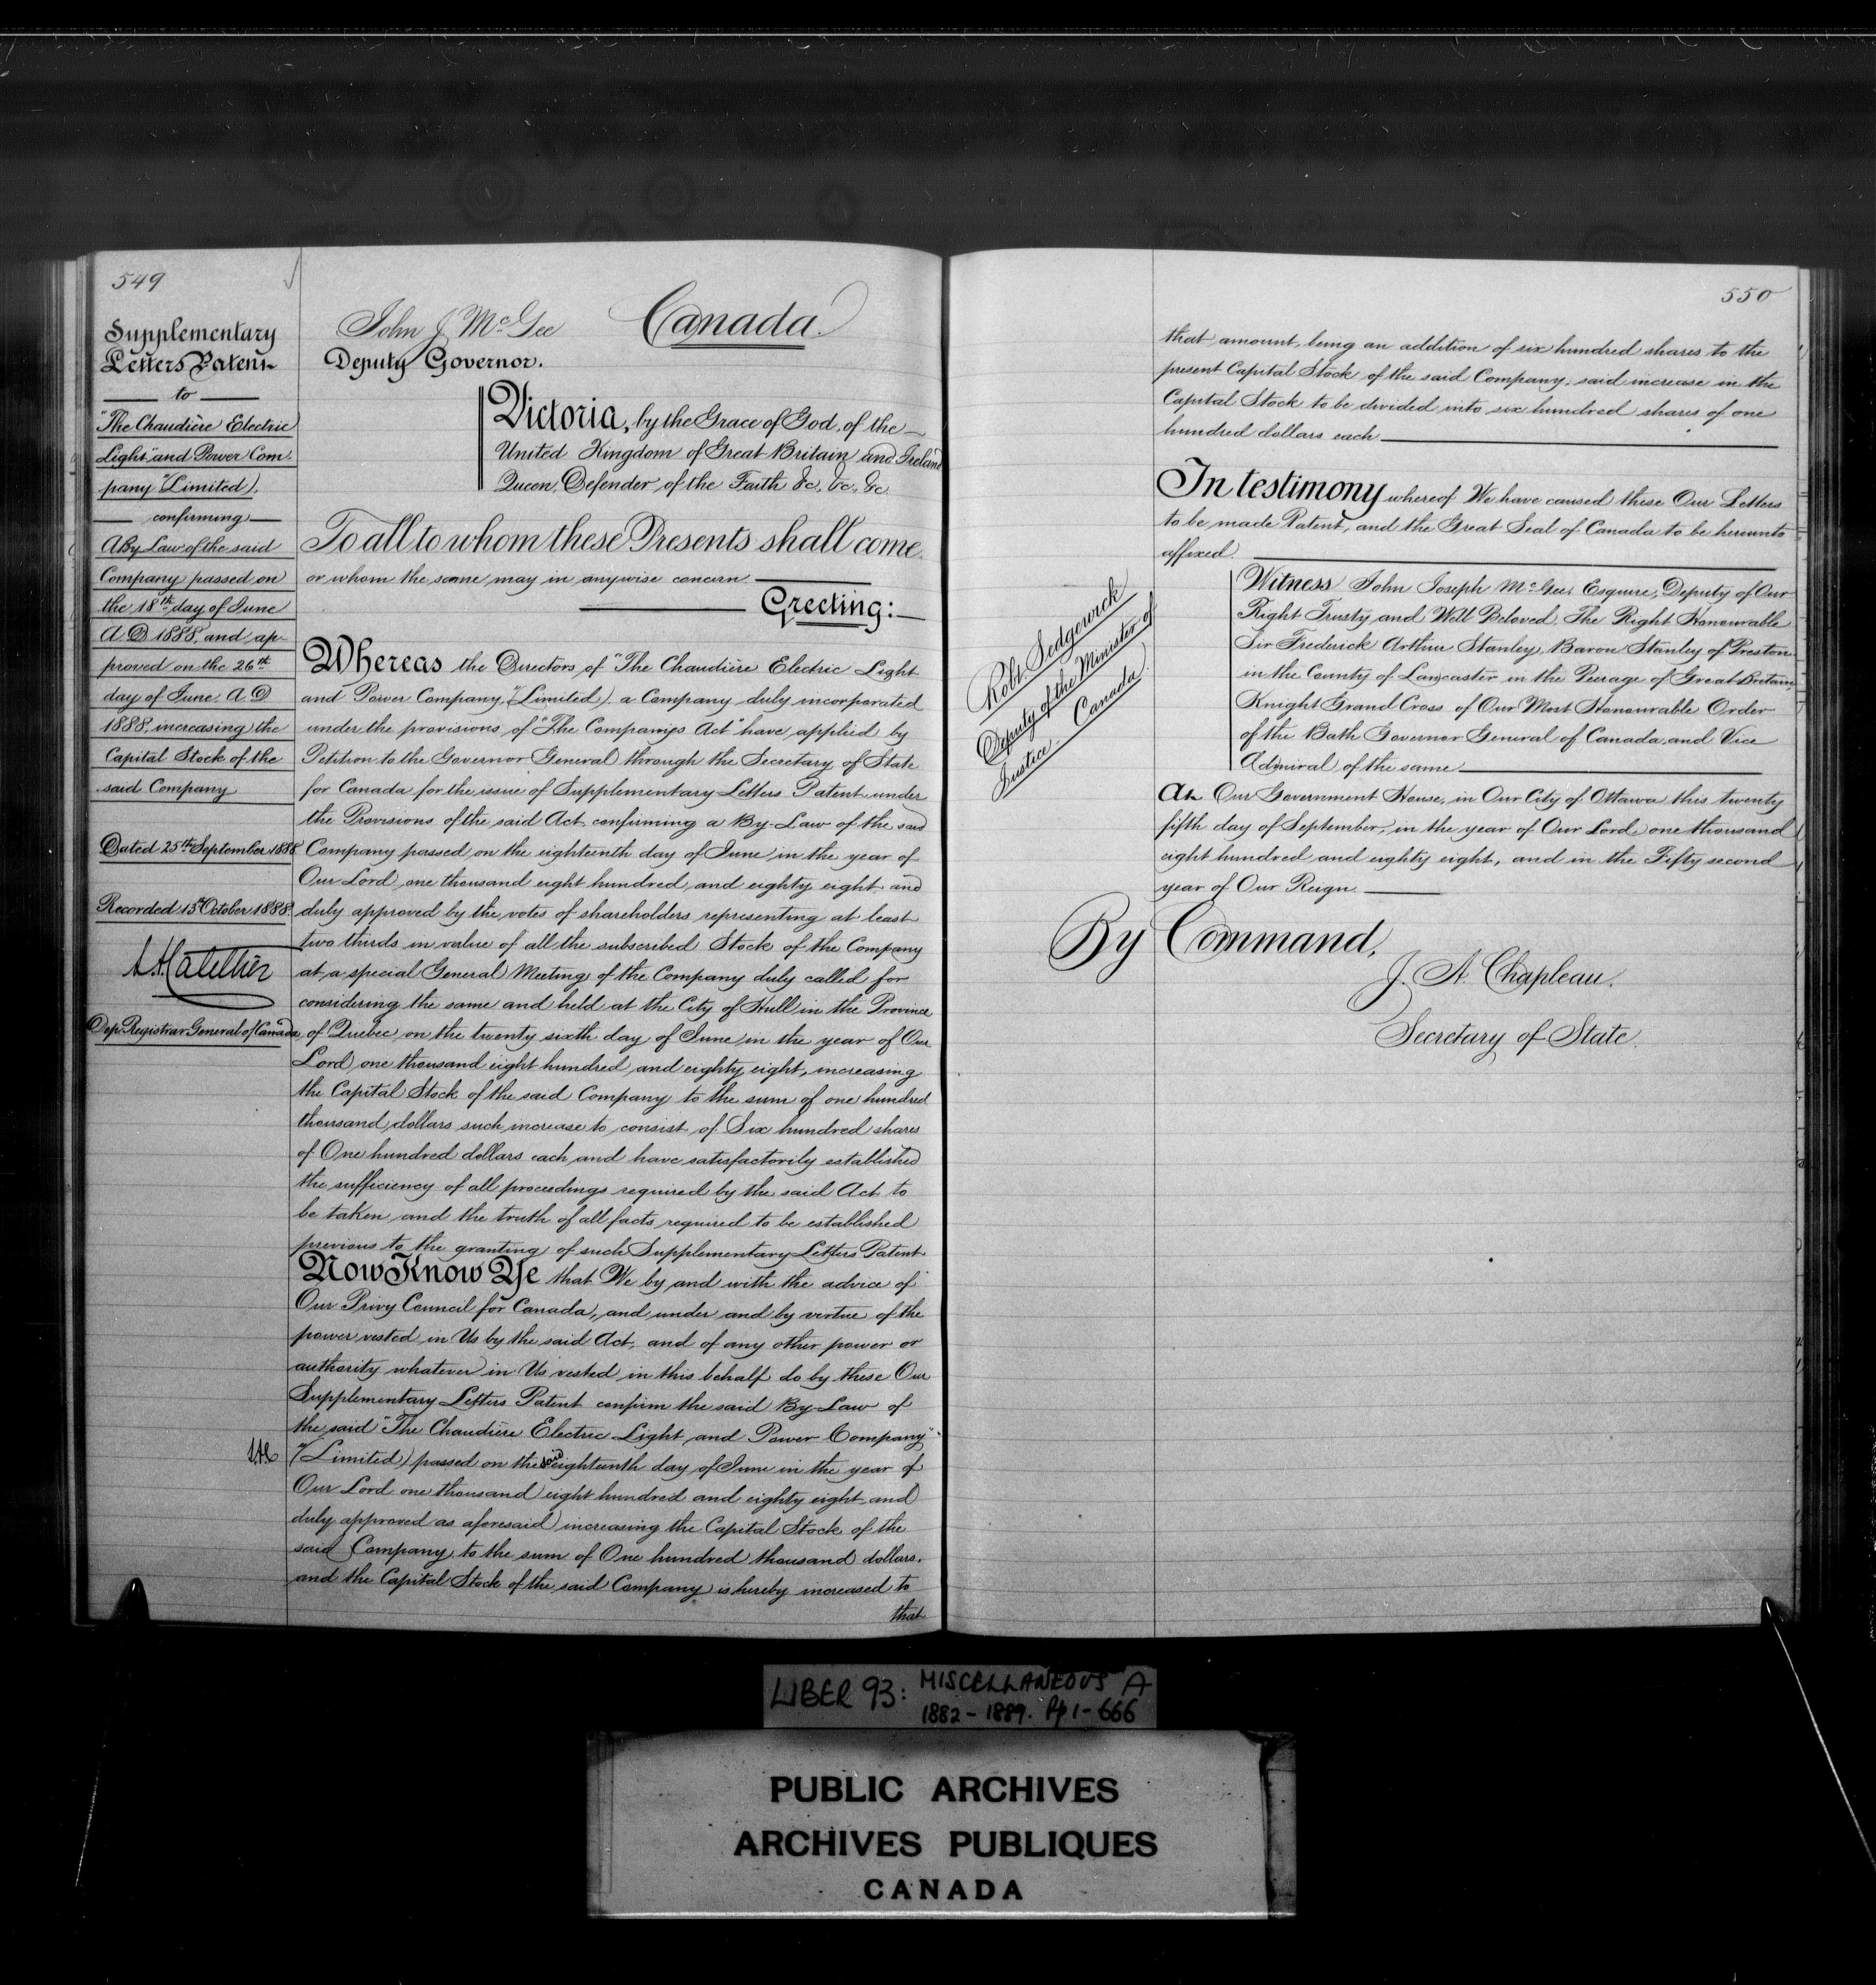 549
Supplementary
Letters Patent
to
"The Chaudière Electric
Light and Power Com-
pany (Limited).
confirming
A By Law of the said
Company passed on
the 18th day of June
A.D 1888, and ap-
proved on the 26th
day of June. A.D
1888, increasing the
Capital Stock of the
said Company
Dated 25th September 1888
Recorded 15th October 1888.
Dep. Registrar General of Canada
John J. McGee
Canada.
Deputy Governor.
Victoria, by the Grace of God, of the
United Kingdom of Great Britain and Ireland
Queen, Defender of the Faith &c, &c, &c
To all to whom these Presents shall come
or whom the same may in anywise concern.
Greeting:
Whereas the Directors of "The Chaudière Electric Light
and Power Company," (Limited) a Company duly incorporated
under the provisions of "The Companys Act" have applied by
Petition to the Governor General through the Secretary of State
for Canada for the issue of Supplementary Letters Patent under
the Provisions of the said Act confirming a By-Law of the said
Company passed on the eighteenth day of June in the year of
Our Lord one thousand eight hundred and eighty eight and
duly approved by the votes of shareholders representing at least
two thirds in value of all the subscribed Stock of the Company
at a special General Meeting of the Company duly called for
considering the same and held at the City of Hull in the Province
of Quebec on the twenty sixth day of June in the year of Our
Lord one thousand eight hundred and eighty eight, increasing
the Capital Stock of the said Company to the sum of one hundred
thousand dollars such increase to consist of Six hundred shares
of One hundred dollars each and have satisfactorily established
the sufficiency of all proceedings required by the said Act to
be taken and the truth of all facts required to be established
previous to the granting of such Supplementary Letters Patent
Now Know Ye that We by and with the advice of
Our Privy Council for Canada, and under and by virtue of the
power vested in Us by the said Act, and of any other power or
authority whatever in Us vested in this behalf do by these Our
Supplementary Letters Patent confirm the said By-Law of
the said "The Chaudière Electric Light and Power Company"
(Limited) passed on the said eighteenth day of June in the year of
Our Lord one thousand eight hundred and eighty eight and
duly approved as aforesaid increasing the Capital Stock of the
said Company to the sum of One hundred thousand dollars.
and the Capital Stock of the said Company is hereby increased to
that
550
that amount, being an addition of six hundred shares to the
present Capital Stock of the said Company: said increase in the
Capital Stock to be divided into six hundred shares of one
hundred dollars each
In testimony whereof We have caused these Our Letters
to be made Patent, and the Great Seal of Canada to be hereunto
affixed.
Robt. Sedgewick
Deputy of the Minister of
Justice. Canada.
Witness John Joseph McGee, Esquire, Deputy of Our
Right Trusty and Well Beloved, The Right Honourable
Sir Frederick Arthur Stanley, Baron Stanley of Preston
in the County of Lancaster in the Peerage of Great Britain,
Knight Grand Cross of Our Most Honourable Order
of the Bath Governor General of Canada, and Vice
Admiral of the same
At Our Government House, in Our City of Ottawa this twenty
fifth day of September, in the year of Our Lord, one thousand
eight hundred and eighty eight, and in the Fifty second
year of Our Reign.
By Command,
J. A. Chapleau.
Secretary of State.
LIBER 93: MISCELLANEOUS A
1882-1889. Pp 1-666
PUBLIC ARCHIVES
ARCHIVES PUBLIQUES
CANADA